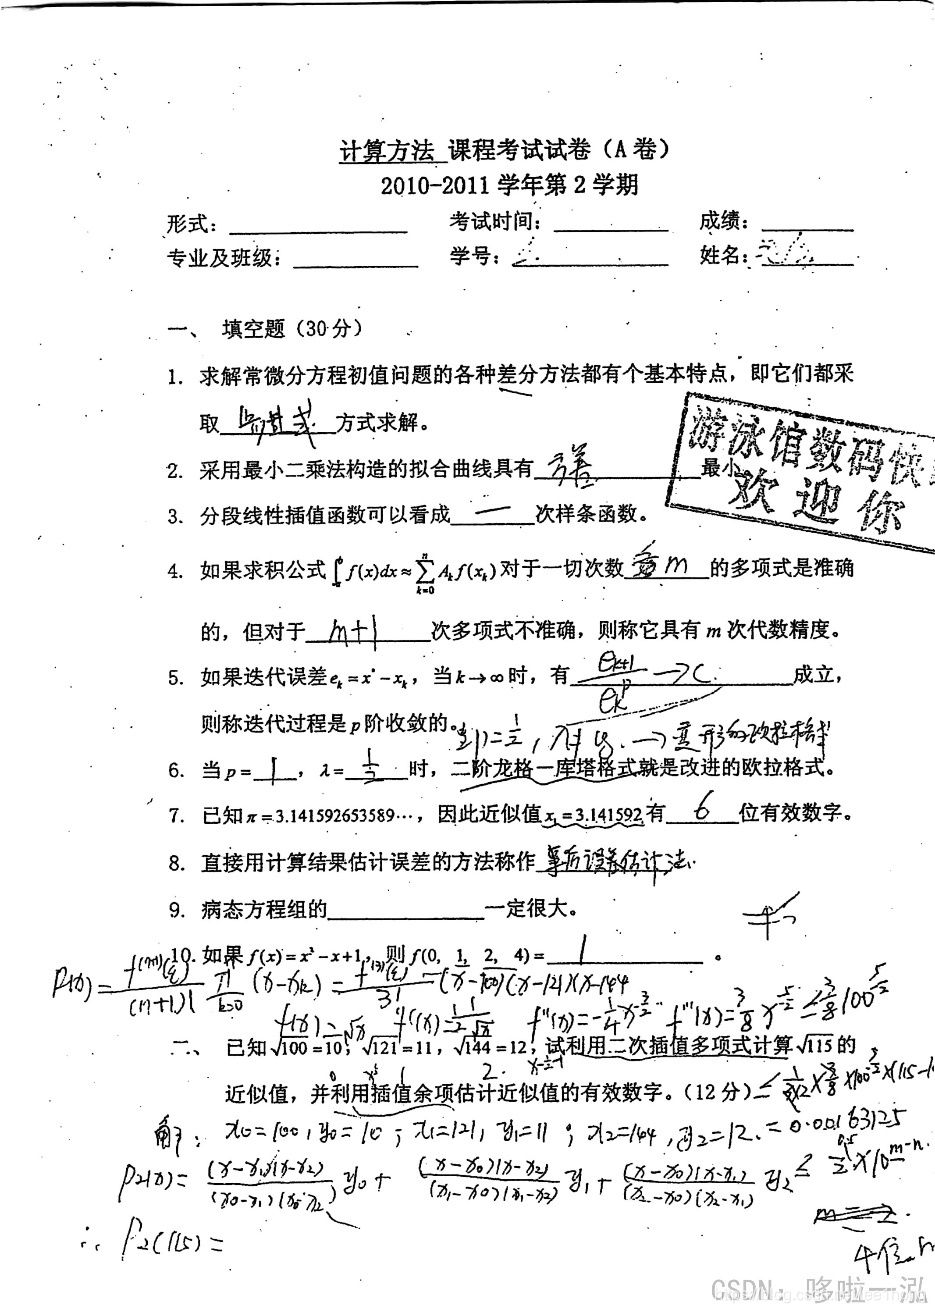 计算方法 课程考试试卷（A 卷）
2010-2011 学年第 2 学期
形式： 考试时间： 成绩：
专业及班级： 学号： 姓名：
一、 填空题（30 分）
1. 求解常微分方程初值问题的各种差分方法都有个基本特点，即它们都采
取 步进式 方式求解。
游泳馆数码快
2. 采用最小二乘法构造的拟合曲线具有 最小
欢迎你
3. 分段线性插值函数可以看成 一 次样条函数。
4. 如果求积公式 ∫f(x)dx≈∑_{k=0}^{n} A_k f(x_k) 对于一切次数 m 的多项式是准确
的，但对于 m+1 次多项式不准确，则称它具有 m 次代数精度。
5. 如果迭代误差 e_k = x* − x_k，当 k→∞ 时，有 e_{k+1}/e_k^p → C 成立，
则称迭代过程是 p 阶收敛的。
6. 当 p = 1 ，λ= 1/2 时，二阶龙格—库塔格式就是改进的欧拉格式。
7. 已知 π=3.141592653589…，因此近似值 x₁=3.141592 有 6 位有效数字。
8. 直接用计算结果估计误差的方法称作 事后误差估计法.
9. 病态方程组的 一定很大。
10. 如果 f(x)=x²−x+1，则 f(0, 1, 2, 4)= 1 。
f(x)=√x f'(x)= f''(x)=−1/4 x f'''(x)=3/8 x
二、 已知 √100=10，√121=11，√144=12，试利用二次插值多项式计算 √115 的
近似值，并利用插值余项估计近似值的有效数字。（12 分）
解： x0=100, y0=10; x1=121, y1=11; x2=144, y2=12. =0.00163125
P2(x)= (x-x1)(x-x2)/(x0-x1)(x0-x2) y0 + (x-x0)(x-x2)/(x1-x0)(x1-x2) y1 + (x-x0)(x-x1)/(x2-x0)(x2-x1) y2
∴ P2(115)=
4位
CSDN：哆啦一泓